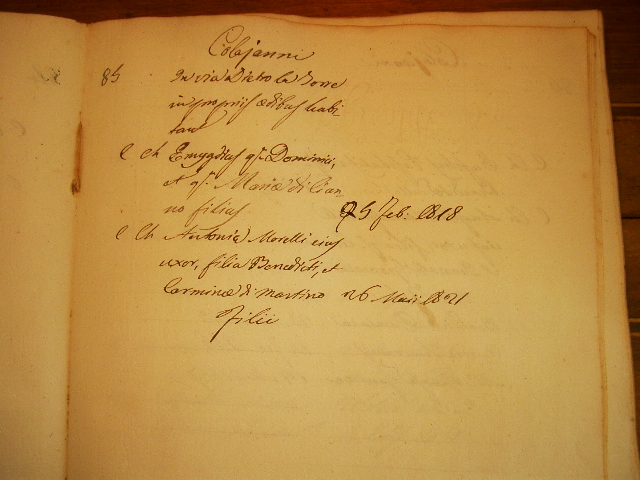 Colajanni
85 In via Dietro la Torre
in propriis ædibus habi-
tant
C Ch Emygdius qm. Dominici,
et qm. Mariæ di Cian-
no filius 25 Feb: 1818
C Ch Antonia Morelli ejus
uxor, filia Benedicti, et
Carminæ di Martino 26 Maii 1821
Filii